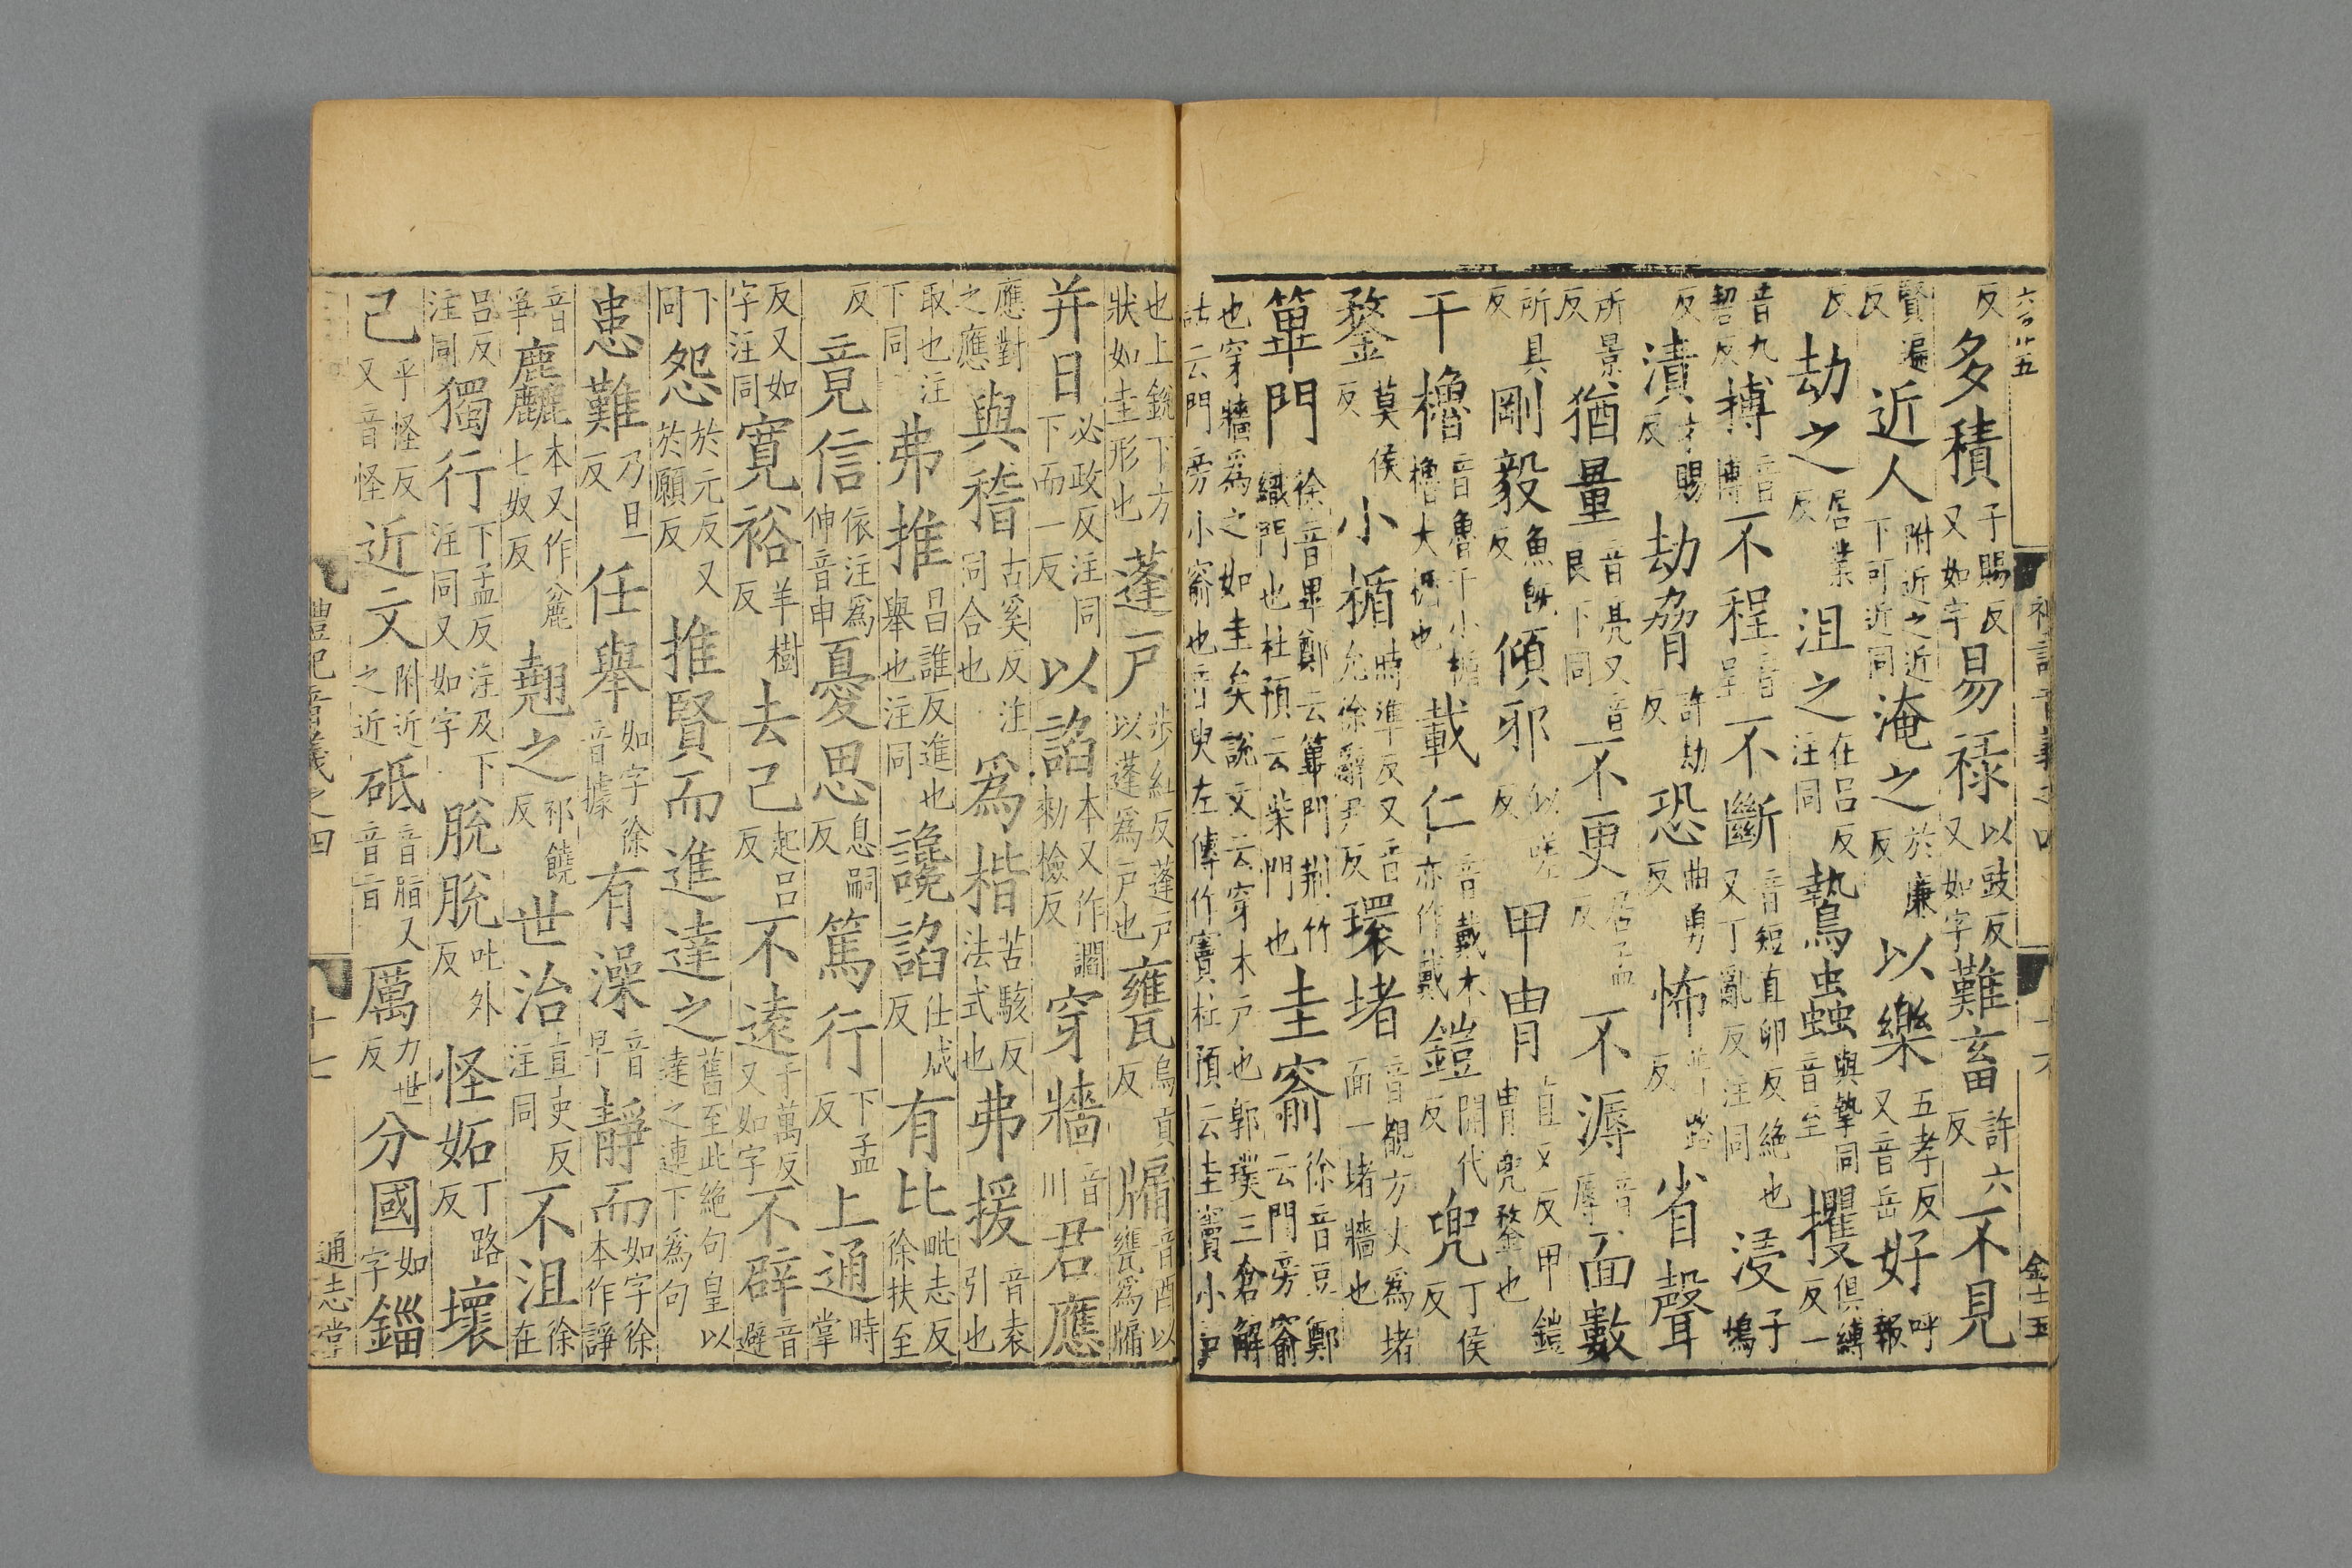 六百廿五 禮記音義之四 十六 金士玉
反多積子賜反又如字易祿以豉反又如字難畜許六反不見
賢遍反近人附近之近下可近同淹之於廉反以樂五孝反又音岳好呼報
反劫之居業反沮之在呂反注同鷙蟲與摯同音至攫俱縛反一
音九碧反搏音博不程音呈不斷音短直卵反絕也又丁亂反注同浸子鴆
反漬才賜反劫脅許劫反恐曲勇反怖普路反省聲
所景反猶量音亮又音良下同不更居孟反不溽音辱面數
所具反剛毅魚旣反傾邪似嗟反甲冑直又反甲鎧冑兜鍪也
干櫓音魯干小楯櫓大楯也載仁音戴本亦作戴鎧開代反兜丁侯反
鍪莫侯反小楯時準反又音允徐辭尹反環堵音覩方丈爲堵面一堵牆也
篳門徐音畢鄭云篳門荆竹織門也杜預云柴門也圭窬徐音豆鄭云門旁窬
也穿牆爲之如圭矣說文云穿木戶也郭璞三倉解詁云門旁小窬也音臾左傳作竇杜預云圭竇小戶
也上銳下方狀如圭形也蓬戶步紅反蓬戶以蓬爲戶也甕烏貢反牖音酉以甕爲牖
并日必政反注同下而一反以諂本又作讇勑檢反穿牆音川君應
應對之應與稽古奚反注同合也爲楷苦駭反法式也弗援音袁引也
取也注下同弗推昌誰反進也舉也注同讒諂仕咸反有比毗志反徐扶至
反竟信依注爲伸音申憂思息嗣反篤行下孟反上通時掌
反又如字注同寬裕羊樹反去己起呂反不遠于萬反又如字不辟音避
下同怨於元反又於願反推賢而進達之舊至此絕句皇以達之連下爲句
患難乃旦反任舉如字徐音據有澡音早靜而如字徐本作諍
音爭麤本又作麄七奴反翹之祁饒反世治直吏反注同不沮徐在
呂反注同獨行下孟反注及下注同又如字脫脫吐外反怪妬丁路反壞
乎怪反又音怪近文附近之近砥音脂又音旨厲力世反分國如字錙
己
禮記音義之四 十七 通志堂